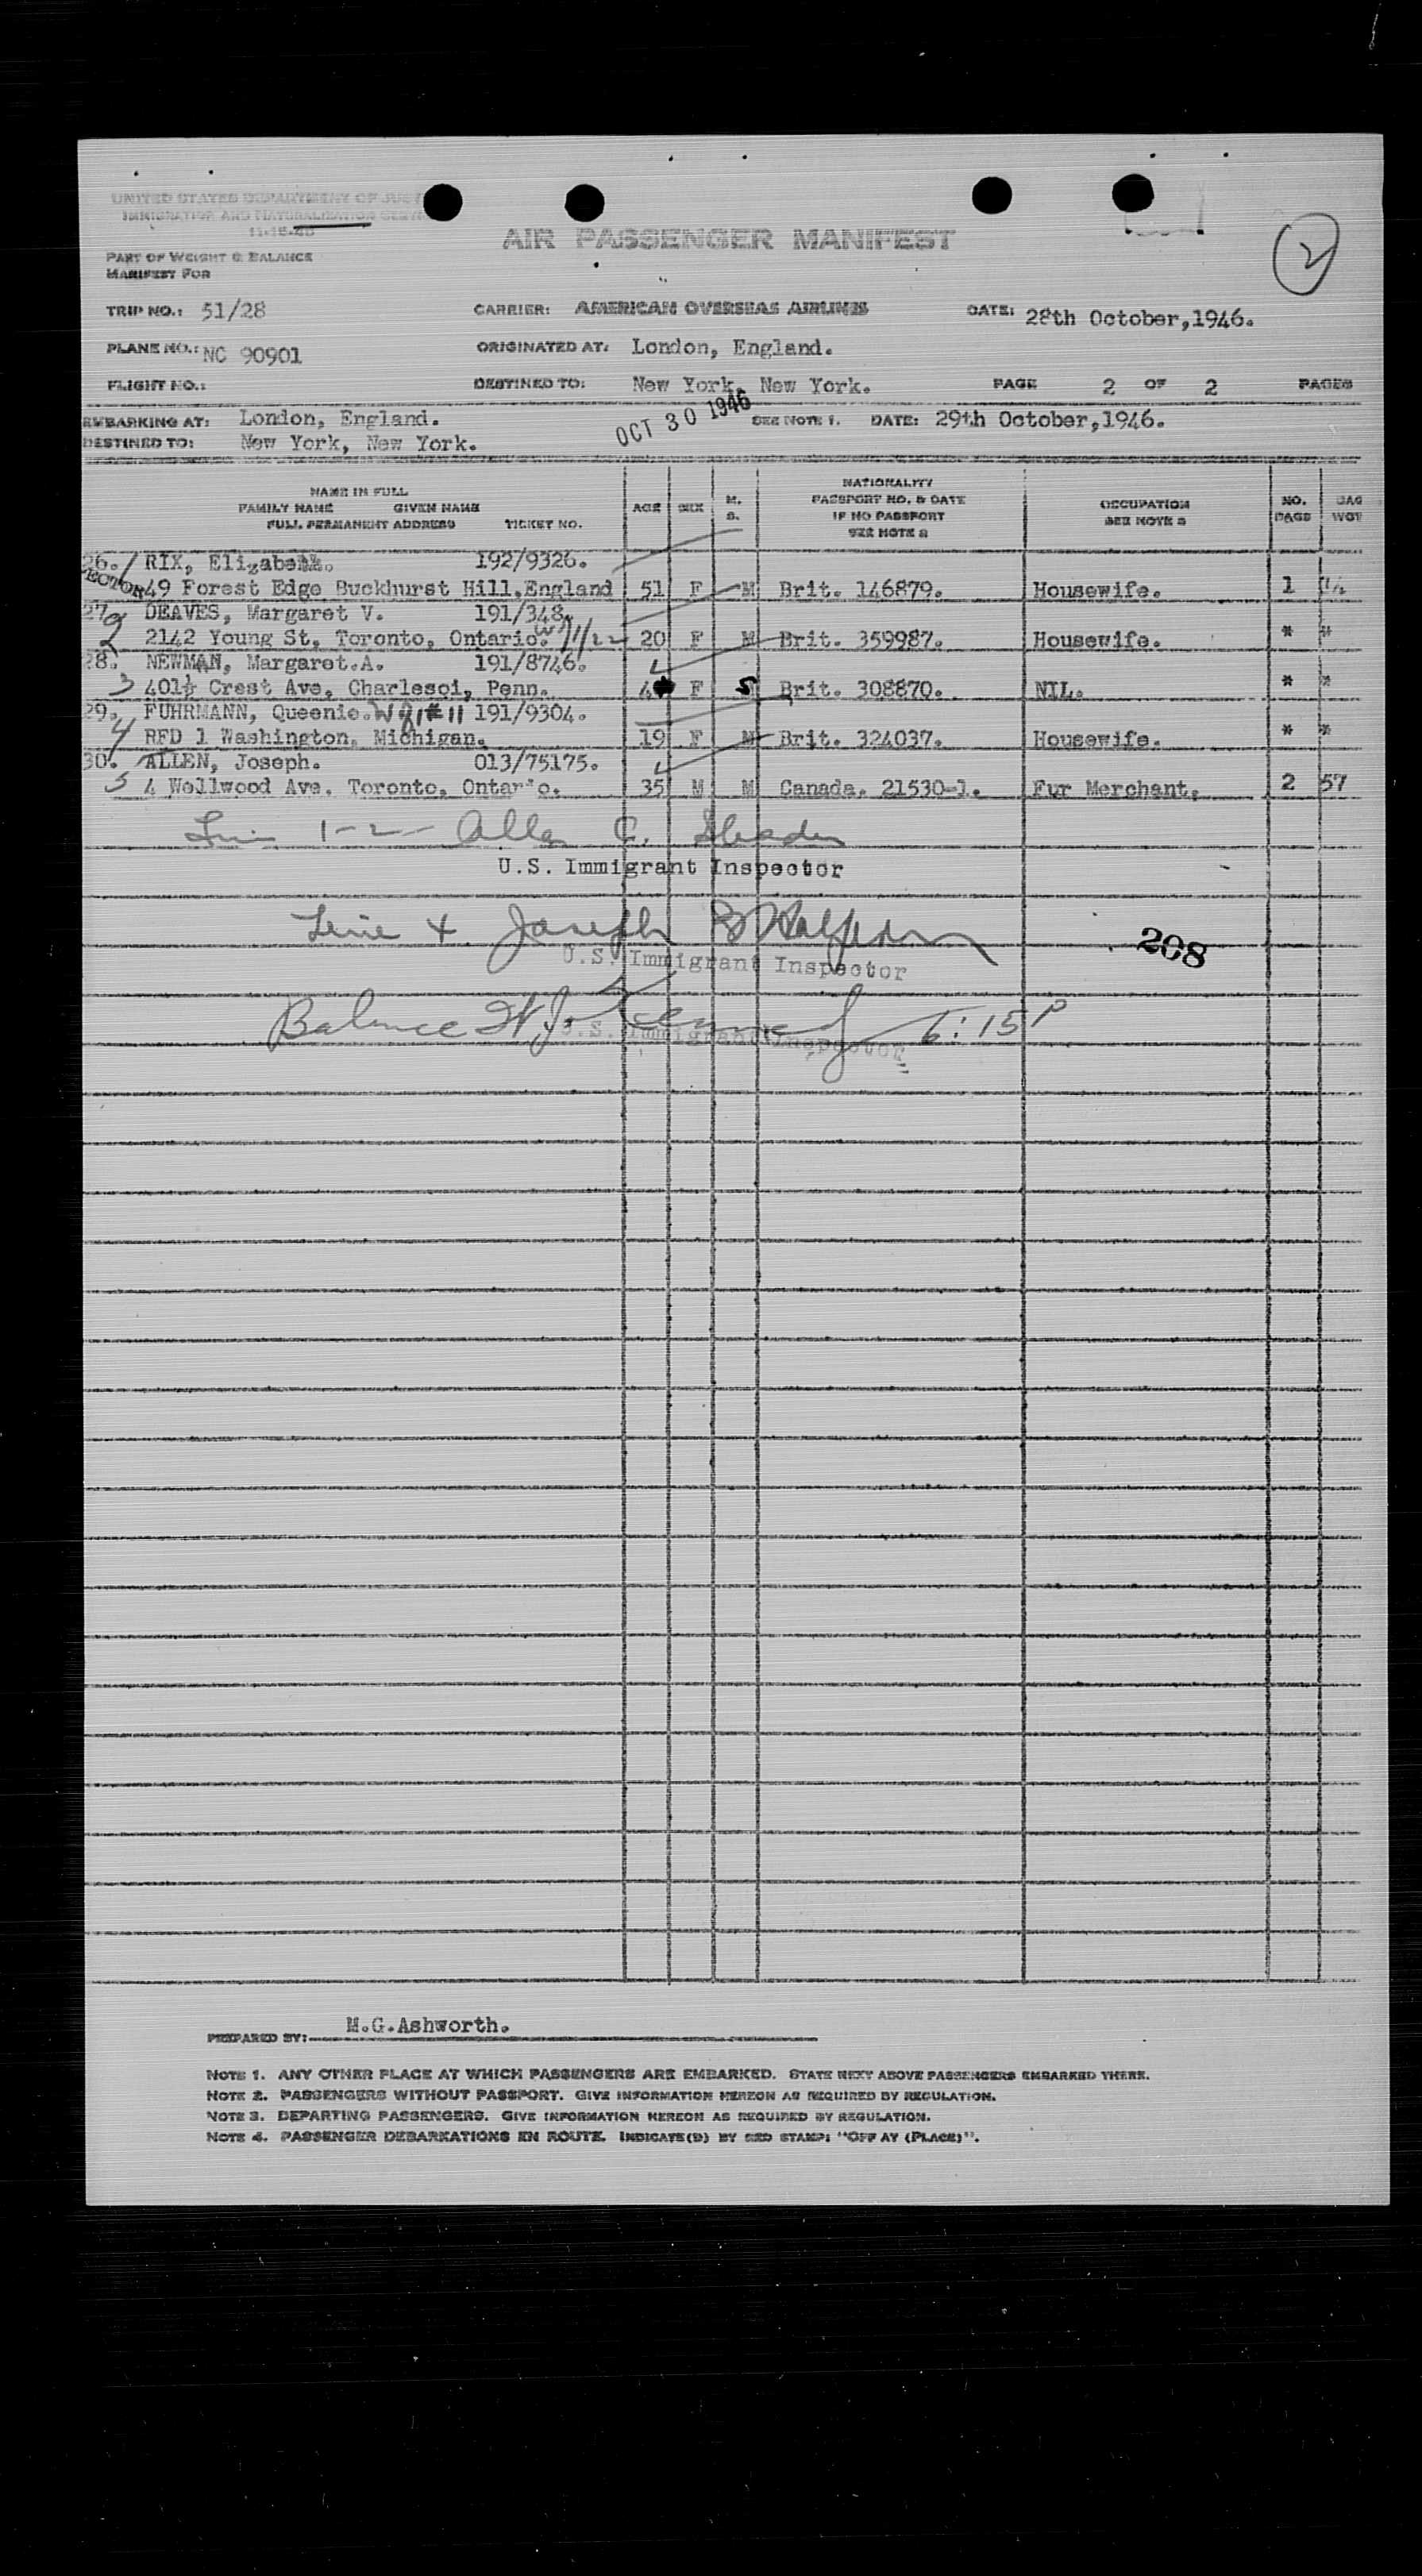 UNITED STATES DEPARTMENT OF JUST
IMMIGRATION AND NATURALIZATION SERV
11-15-45
AIR PASSENGER MANIFEST
2
PART OF WEIGHT & BALANCE
MANIFEST FOR
TRIP NO.: 51/28 CARRIER: AMERICAN OVERSEAS AIRLINES DATE: 28th October,1946.
PLANE NO.: NC 90901 ORIGINATED AT: London, England.
FLIGHT NO.: DESTINED TO: New York, New York. PAGE 2 OF 2 PAGES
EMBARKING AT: London, England. OCT 30 1946 SEE NOTE 1. DATE: 29th October,1946.
DESTINED TO: New York, New York.
NAME IN FULL
FAMILY NAME GIVEN NAME
FULL PERMANENT ADDRESS TICKET NO.
AGE SEX M. S.
NATIONALITY
PASSPORT NO. & DATE
IF NO PASSPORT
SEE NOTE 2
OCCUPATION
SEE NOTE 3
NO. BAG
PAGS WGT
26. RIX, Elizabeth. 192/9326.
49 Forest Edge Buckhurst Hill,England 51 F M Brit. 146879. Housewife. 1
27. DEAVES, Margaret V. 191/348.
2 2142 Young St, Toronto, Ontario. 20 F M Brit. 359987. Housewife. * *
28. NEWMAN, Margaret.A. 191/8746.
3 401½ Crest Ave, Charleroi, Penn. F S Brit. 308870. NIL. * *
29. FUHRMANN, Queenie. 191/9304.
4 RFD 1 Washington, Michigan. 19 F M Brit. 324037. Housewife. * *
30. ALLEN, Joseph. 013/75175.
5 4 Wellwood Ave. Toronto, Ontario. 35 M M Canada. 21530-1. Fur Merchant. 2 57
1-2- Allen C.
U.S. Immigrant Inspector
Line 4 Joseph B Halpern
U.S. Immigrant Inspector
208
Balance 6:15 P
U.S. Immigrant Inspector
PREPARED BY: M.G.Ashworth.
NOTE 1. ANY OTHER PLACE AT WHICH PASSENGERS ARE EMBARKED. STATE NEXT ABOVE PASSENGERS EMBARKED THERE.
NOTE 2. PASSENGERS WITHOUT PASSPORT. GIVE INFORMATION HEREON AS REQUIRED BY REGULATION.
NOTE 3. DEPARTING PASSENGERS. GIVE INFORMATION HEREON AS REQUIRED BY REGULATION.
NOTE 4. PASSENGER DEBARKATIONS EN ROUTE. INDICATE(D) BY RED STAMP: "OFF AT (PLACE)".